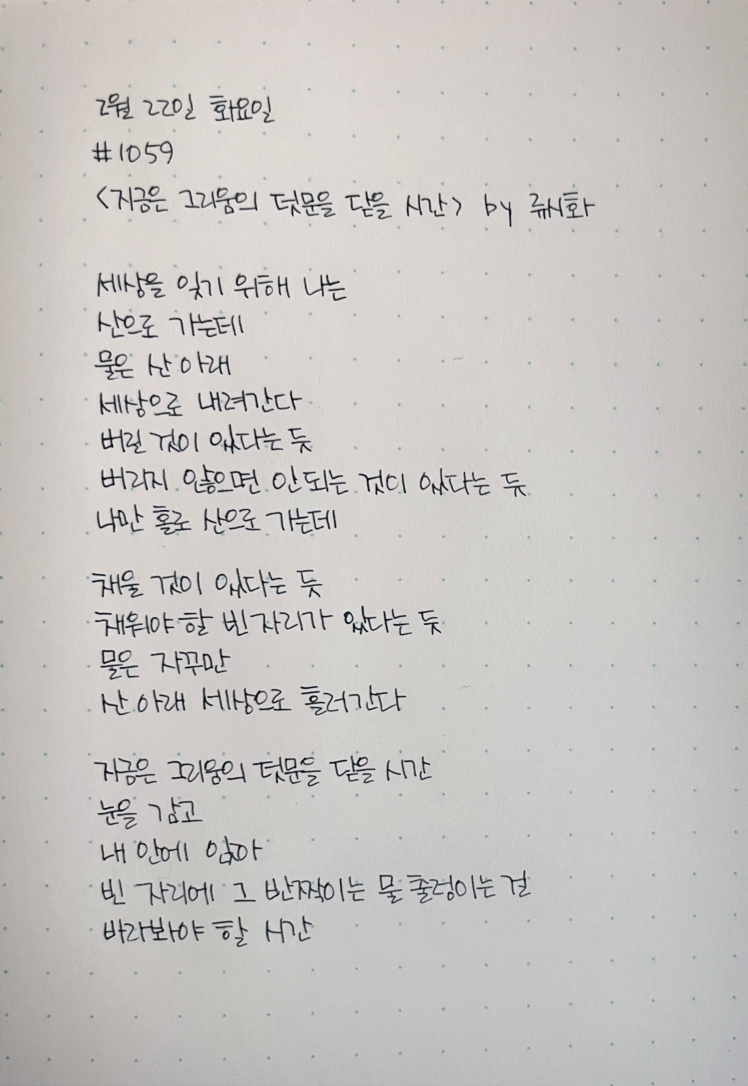 2월 22일 화요일
#1059
<지금은 그리움의 덧문을 닫을 시간> by 류시화
세상을 잊기 위해 나는
산으로 가는데
물은 산 아래
세상으로 내려간다
버릴 것이 있다는 듯
버리지 않으면 안되는 것이 있다는 듯
나만 홀로 산으로 가는데
채울 것이 있다는 듯
채워야 할 빈 자리가 있다는 듯
물은 자꾸만
산 아래 세상으로 흘러간다
지금은 그리움의 덧문을 닫을 시간
눈을 감고
내 안에 앉아
빈 자리에 그 반짝이는 물 출렁이는 걸
바라봐야 할 시간